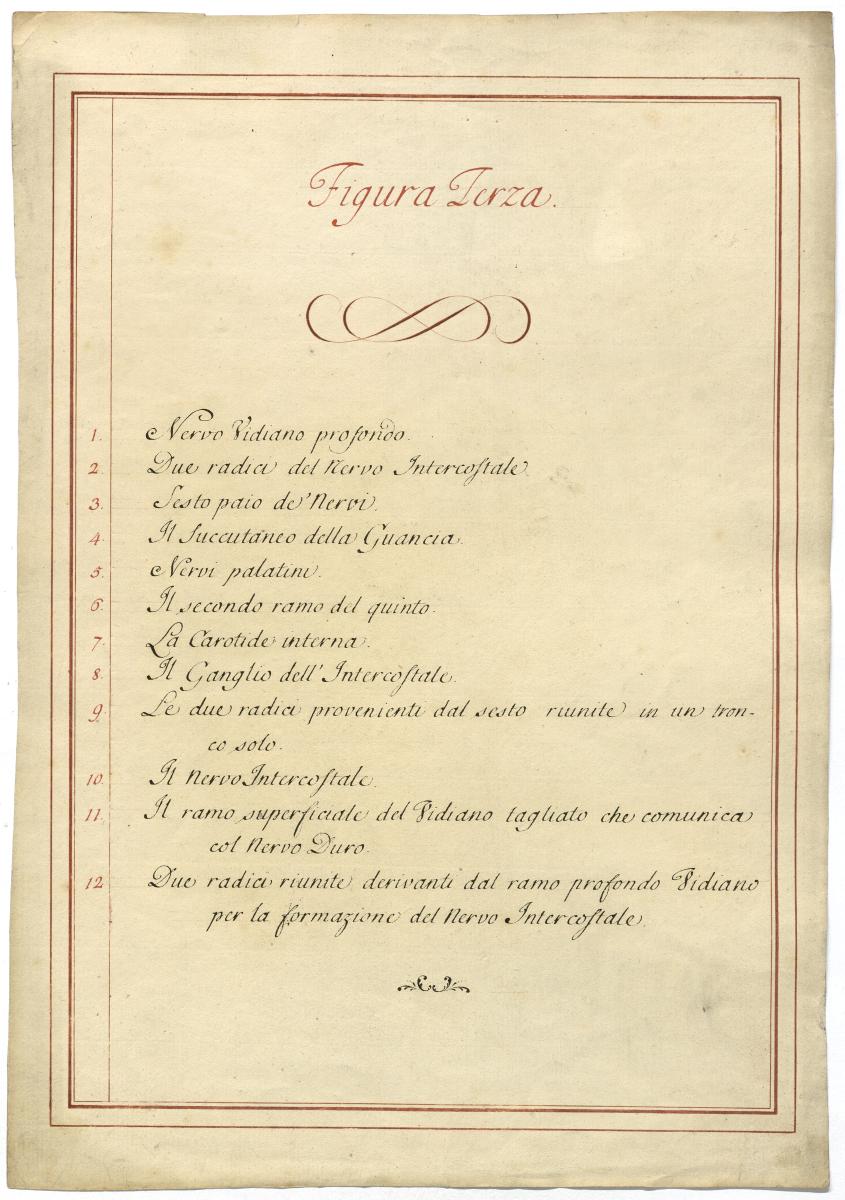 Figura Terza.
1. Nervo Vidiano profondo.
2. Due radici del Nervo Intercoſtale.
3. Sesto paio de' Nervi.
4. Il Succutaneo della Guancia.
5. Nervi palatini.
6. Il secondo ramo del quinto.
7. La Carotide interna.
8. Il Ganglio dell' Intercoſtale.
9. Le due radici provenienti dal sesto riunite in un tron-
co solo.
10. Il Nervo Intercoſtale.
11. Il ramo superficiale del Vidiano tagliato che comunica
col Nervo Duro.
12 Due radici riunite derivanti dal ramo profondo Vidiano
per la formazione del Nervo Intercoſtale.